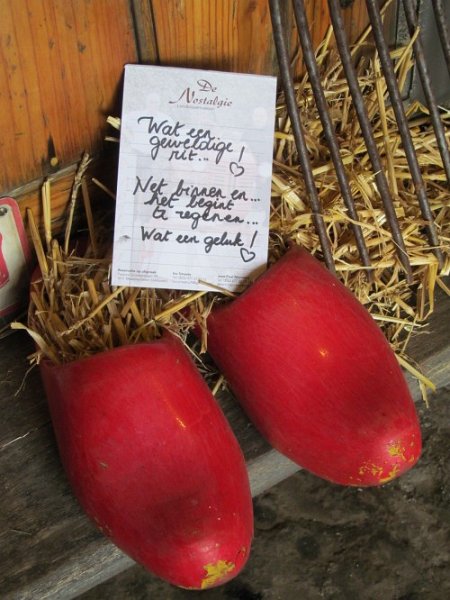 De
Nostalgie
Wat een
geweldige
rit... !
Net binnen en...
het begint
te regenen...
Wat een geluk!